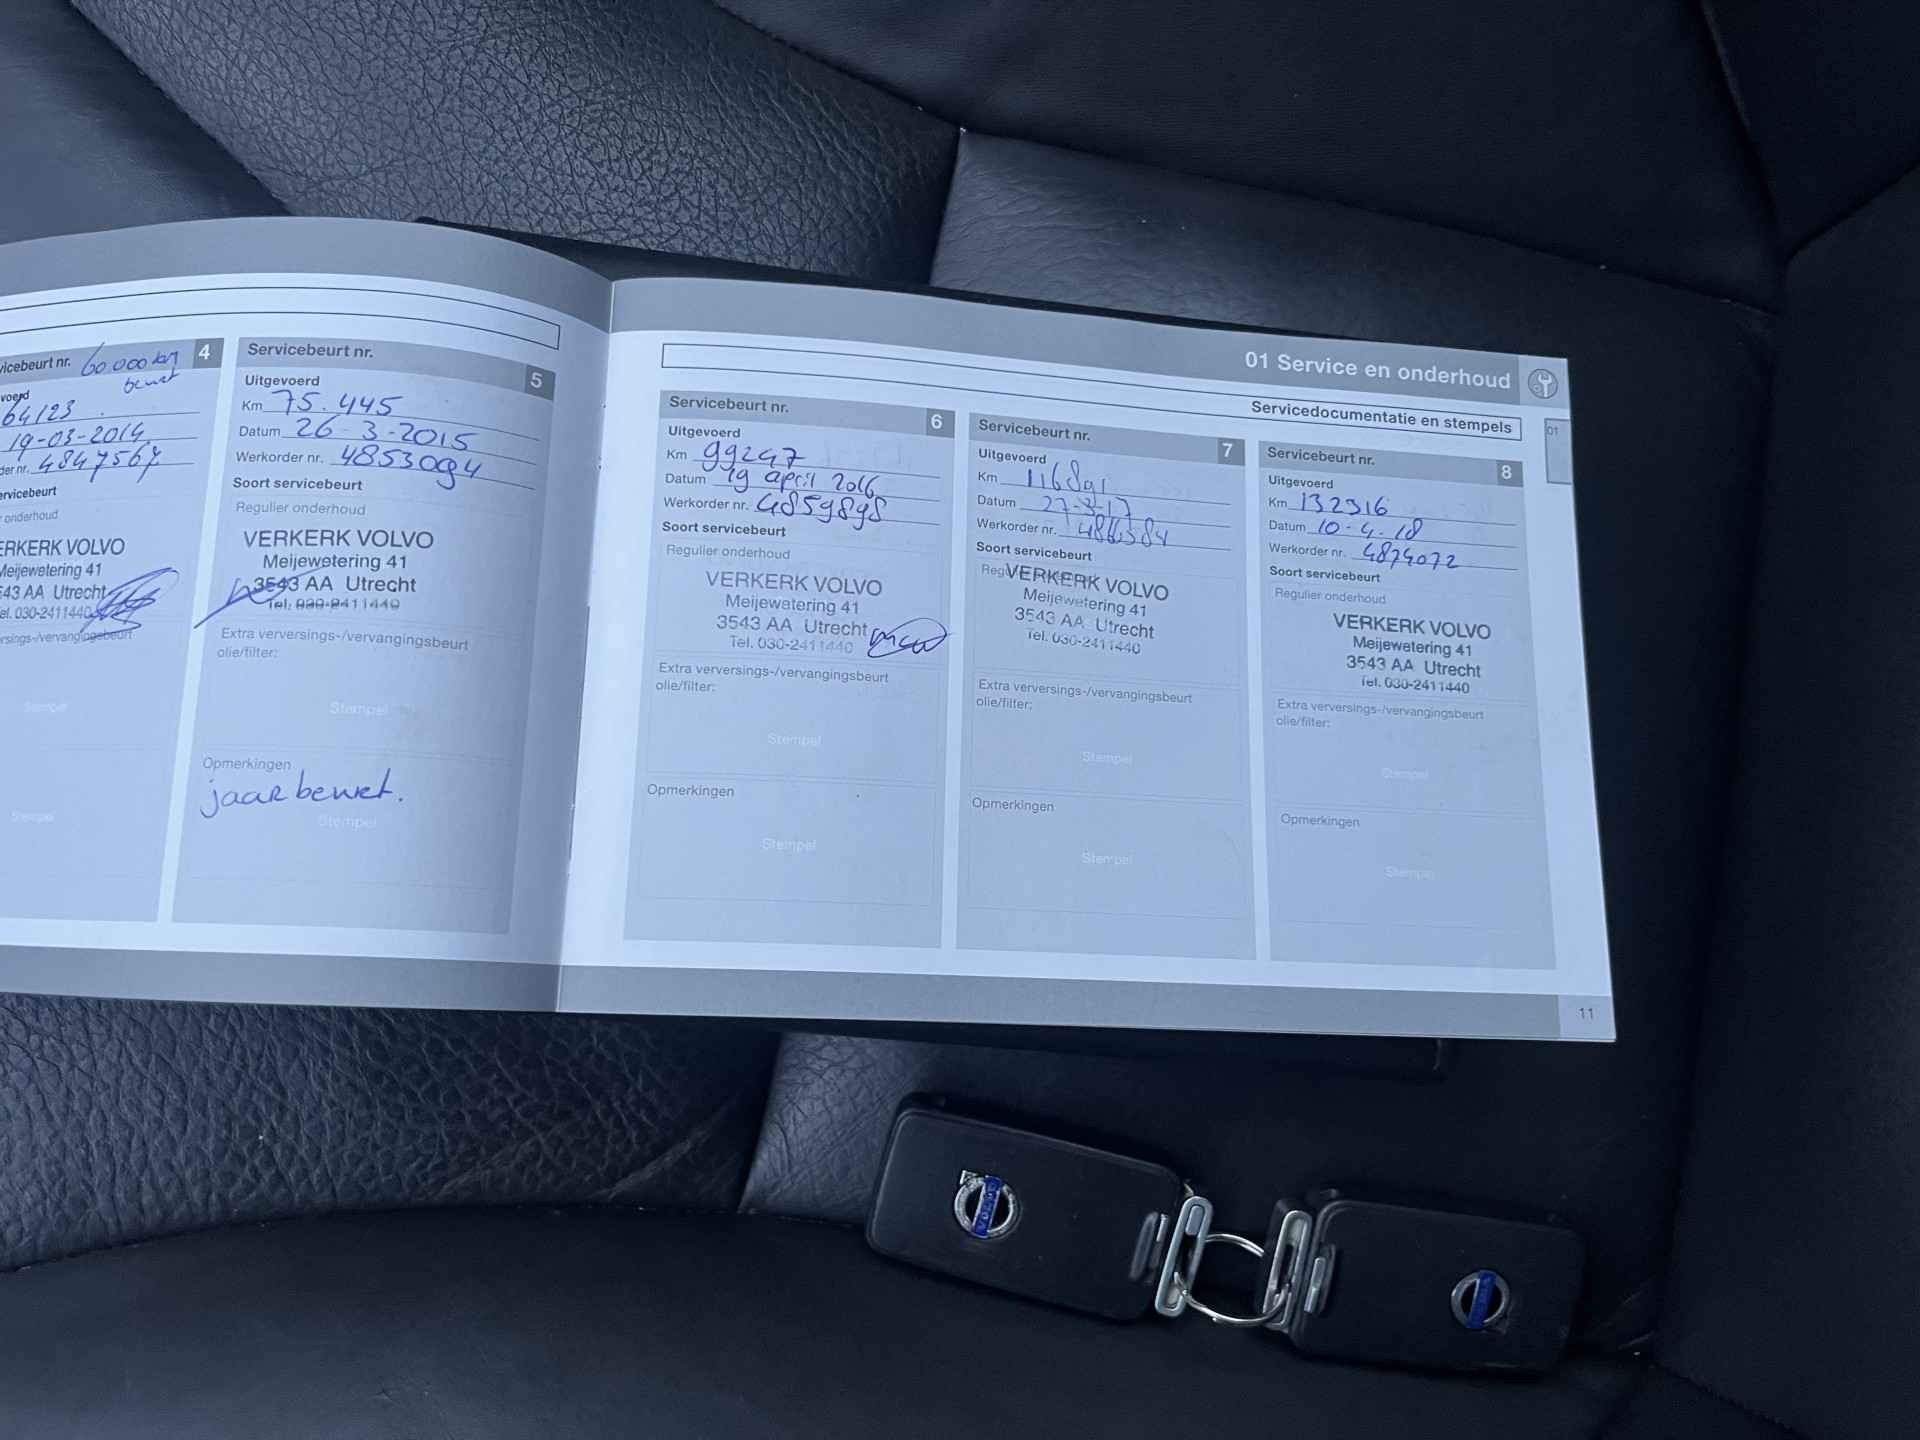 vicebeurt nr. 60.000 km 4
beurt
voerd
64123
19-03-2014
der nr. 4847567
ervicebeurt
r onderhoud
ERKERK VOLVO
Meijewetering 41
543 AA Utrecht
el. 030-2411440
ersings-/vervangingsbeurt
Stempel
Stempel
Servicebeurt nr. 5
Uitgevoerd
Km 75.445
Datum 26-3-2015
Werkorder nr. 4853094
Soort servicebeurt
Regulier onderhoud
VERKERK VOLVO
Meijewetering 41
3543 AA Utrecht
Tel. 030-2411440
Extra verversings-/vervangingsbeurt
olie/filter:
Stempel
Opmerkingen
jaarbeurt.
Stempel
01 Service en onderhoud
Servicedocumentatie en stempels
01
Servicebeurt nr. 6
Uitgevoerd
Km 99247
Datum 19 april 2016
Werkorder nr. 4859898
Soort servicebeurt
Regulier onderhoud
VERKERK VOLVO
Meijewetering 41
3543 AA Utrecht
Tel. 030-2411440
Extra verversings-/vervangingsbeurt
olie/filter:
Stempel
Opmerkingen
Stempel
Servicebeurt nr. 7
Uitgevoerd
Km 116891
Datum 27-3-17
Werkorder nr.
Soort servicebeurt
VERKERK VOLVO
Meijewetering 41
3543 AA Utrecht
Tel. 030-2411440
Extra verversings-/vervangingsbeurt
olie/filter:
Stempel
Opmerkingen
Stempel
Servicebeurt nr. 8
Uitgevoerd
Km 132316
Datum 10-4-18
Werkorder nr. 4874072
Soort servicebeurt
Regulier onderhoud
VERKERK VOLVO
Meijewetering 41
3543 AA Utrecht
Tel. 030-2411440
Extra verversings-/vervangingsbeurt
olie/filter:
Stempel
Opmerkingen
Stempel
11
VOLVO
VOLVO